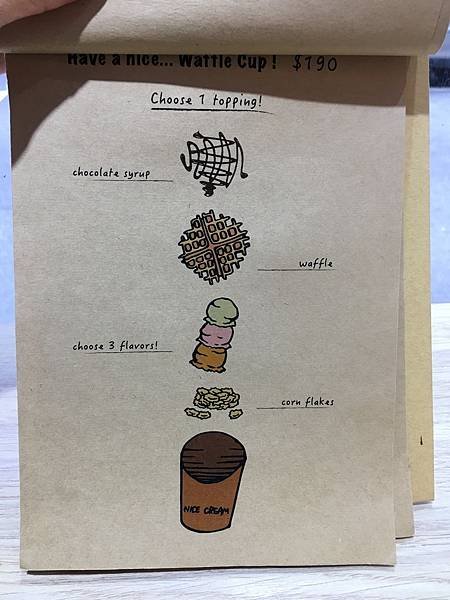 Have a nice... Waffle Cup! $190
Choose 1 topping!
chocolate syrup
waffle
choose 3 flavors!
corn flakes
NICE CREAM